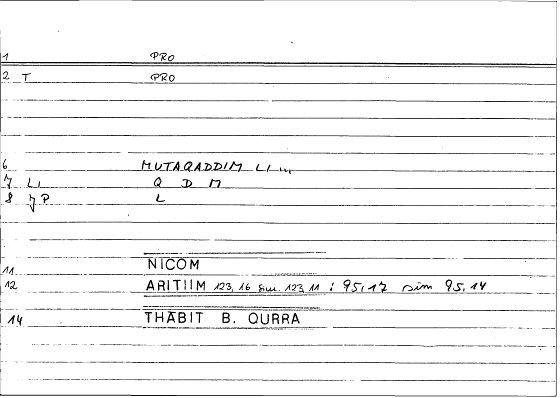 1 PRO
2 T PRO
6 MUTAQADDIM LI ...
7 LI Q D M
8 7P L
11 NICOM
12 ARITIIM 123,16 sim. 123,11 ; 95,17 sim 95,14
14 THĀBIT B. QURRA